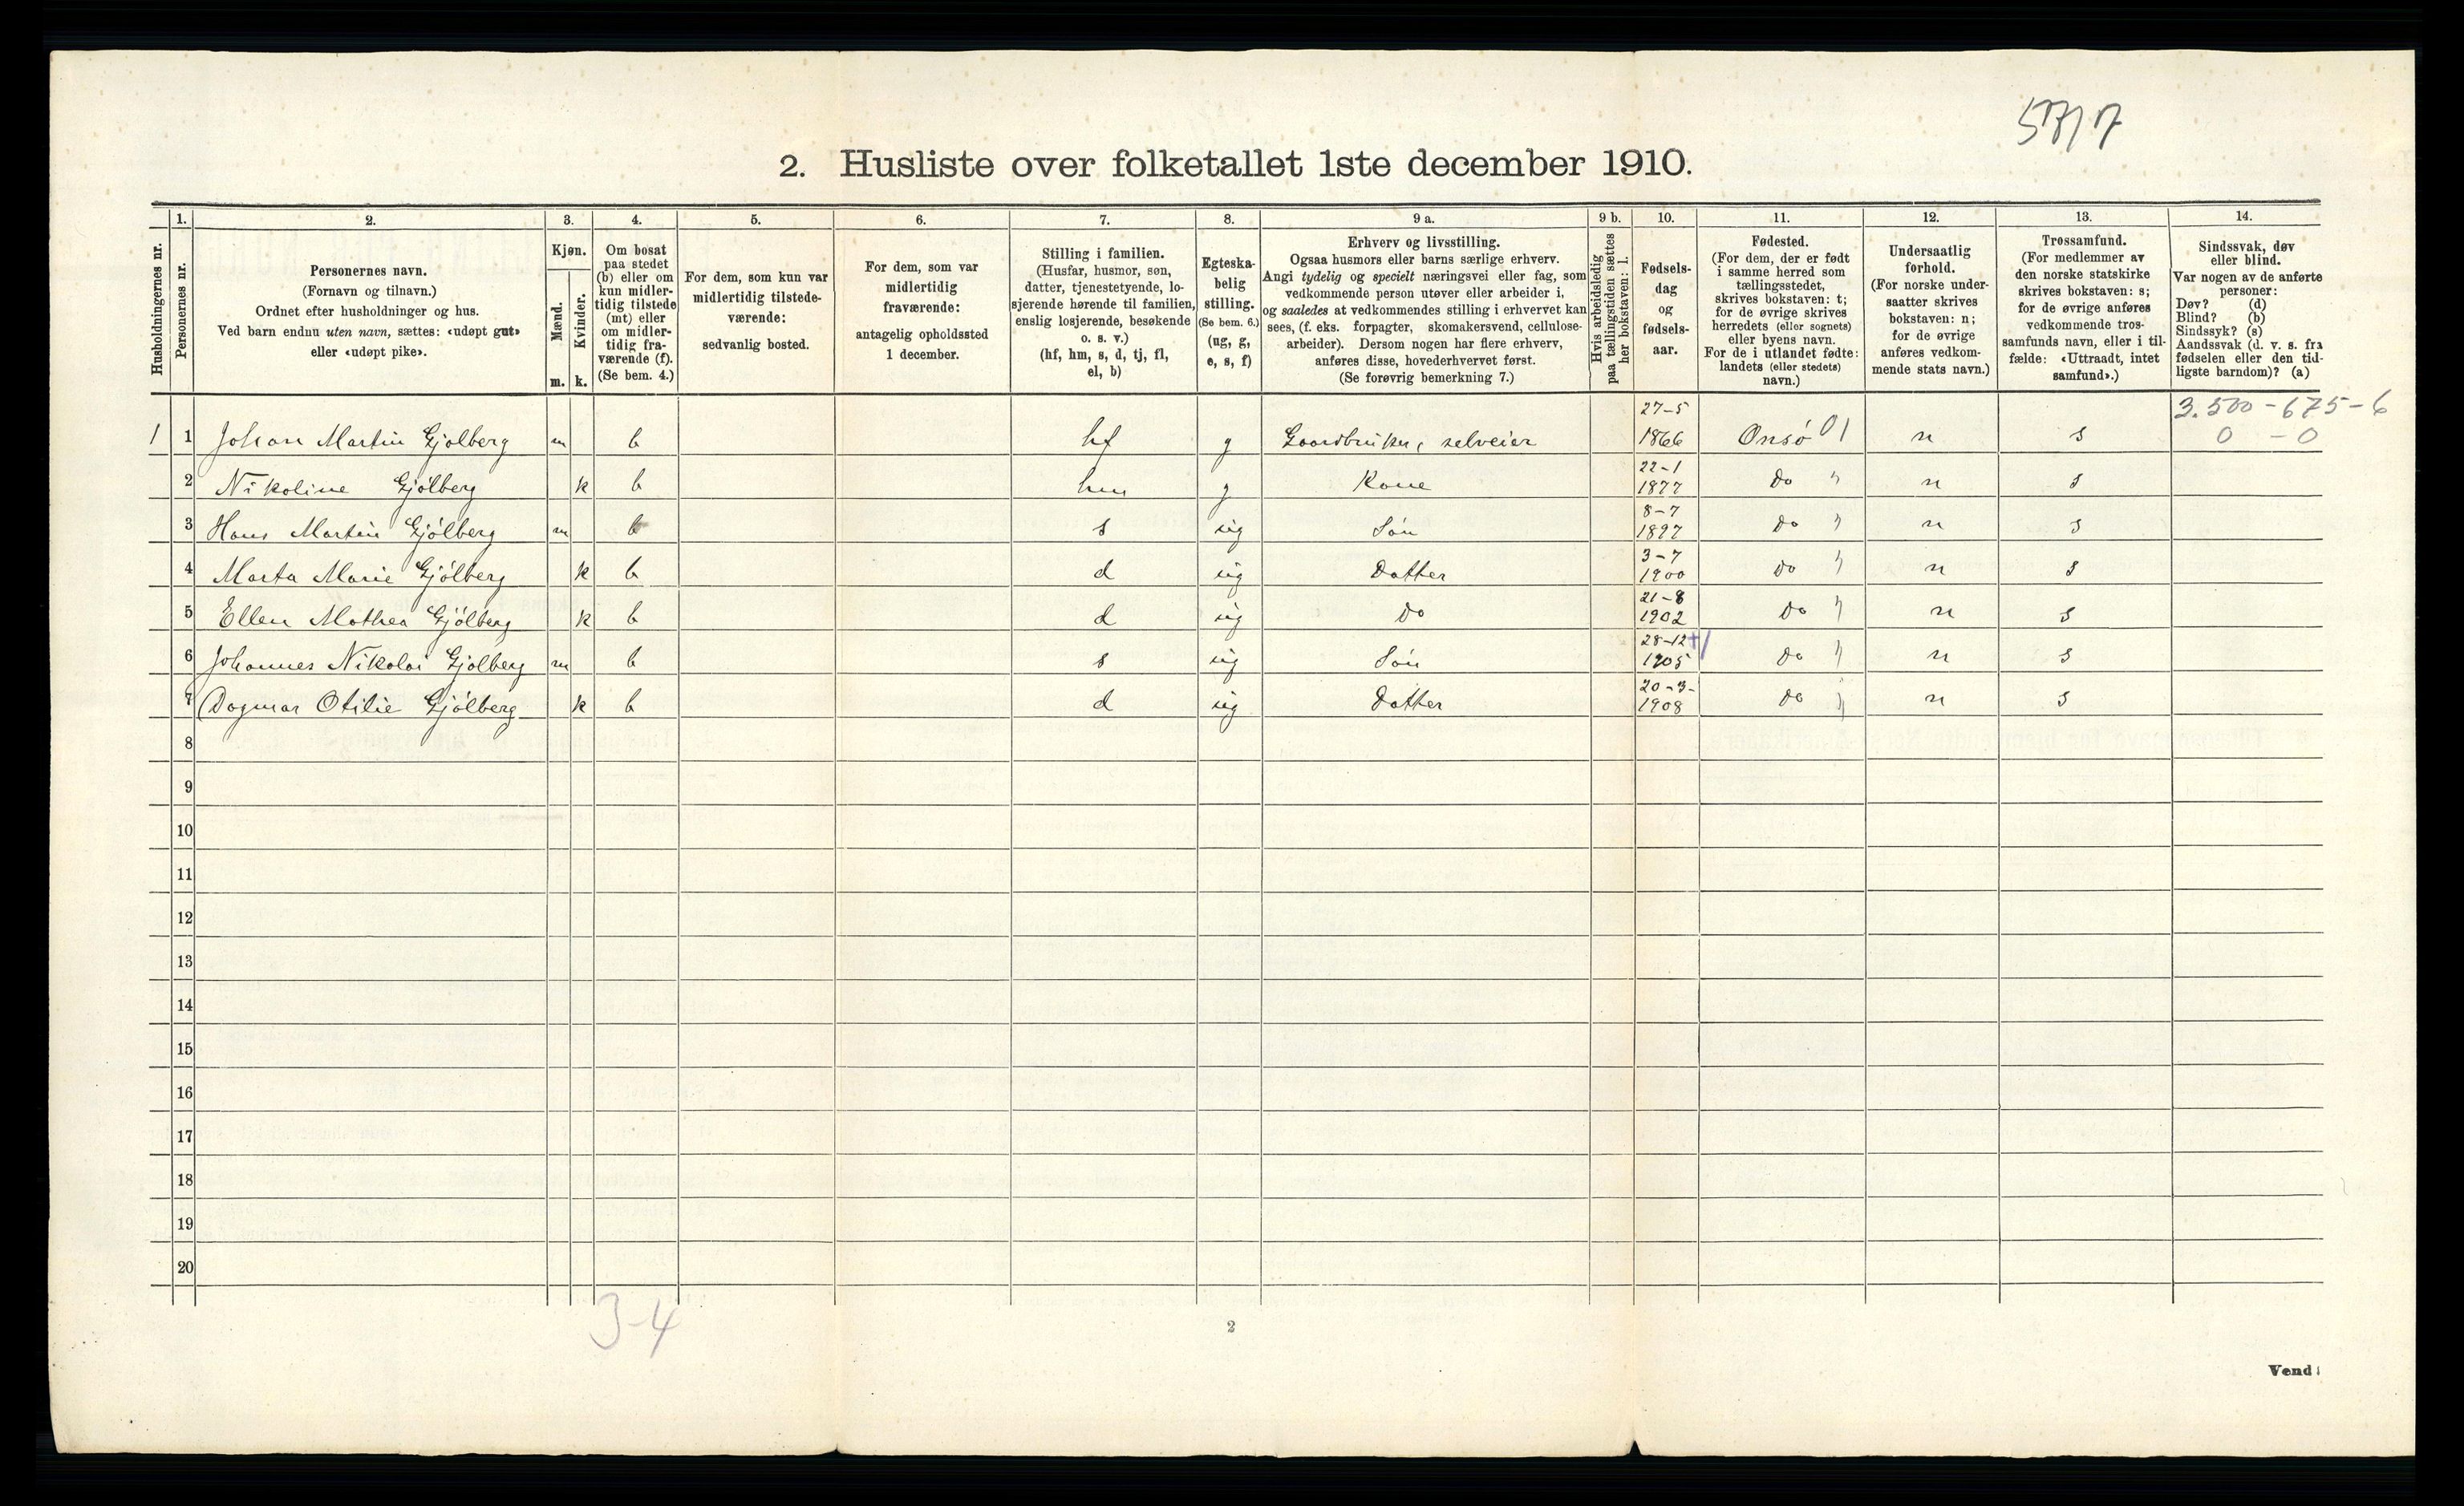 5717
2. Husliste over folketallet 1ste december 1910.
Husholdningernes nr.
1.
Personernes nr.
2.
Personernes navn.
(Fornavn og tilnavn.)
Ordnet efter husholdninger og hus.
Ved barn endnu uten navn, sættes: «udøpt gut»
eller «udøpt pike».
3.
Kjøn.
Mænd.
Kvinder.
m. k.
4.
Om bosat
paa stedet
(b) eller om
kun midler-
tidig tilstede
(mt) eller
om midler-
tidig fra-
værende (f).
(Se bem. 4.)
5.
For dem, som kun var
midlertidig tilstede-
værende:
sedvanlig bosted.
6.
For dem, som var
midlertidig
fraværende:
antagelig opholdssted
1 december.
7.
Stilling i familien.
(Husfar, husmor, søn,
datter, tjenestetyende, lo-
sjerende hørende til familien,
enslig losjerende, besøkende
o. s. v.)
(hf, hm, s, d, tj, fl,
el, b)
8.
Egteska-
belig
stilling.
(Se bem. 6.)
(ug, g,
e, s, f)
9 a.
Erhverv og livsstilling.
Ogsaa husmors eller barns særlige erhverv.
Angi tydelig og specielt næringsvei eller fag, som
vedkommende person utøver eller arbeider i,
og saaledes at vedkommendes stilling i erhvervet kan
sees, (f. eks. forpagter, skomakersvend, cellulose-
arbeider). Dersom nogen har flere erhverv,
anføres disse, hovederhvervet først.
(Se forøvrig bemerkning 7.)
9 b.
Hvis arbeidsledig
paa tællingstiden sættes
her bokstaven: l.
10.
Fødsels-
dag
og
fødsels-
aar.
11.
Fødested.
(For dem, der er født
i samme herred som
tællingsstedet,
skrives bokstaven: t;
for de øvrige skrives
herredets (eller sognets)
eller byens navn.
For de i utlandet fødte:
landets (eller stedets)
navn.)
12.
Undersaatlig
forhold.
(For norske under-
saatter skrives
bokstaven: n;
for de øvrige
anføres vedkom-
mende stats navn.)
13.
Trossamfund.
(For medlemmer av
den norske statskirke
skrives bokstaven: s;
for de øvrige anføres
vedkommende tros-
samfunds navn, eller i til-
fælde: «Uttraadt, intet
samfund».)
14.
Sindssvak, døv
eller blind.
Var nogen av de anførte
personer:
Døv? (d)
Blind? (b)
Sindssyk? (s)
Aandssvak (d. v. s. fra
fødselen eller den tid-
ligste barndom)? (a)
3.500 - 675 - 6
0 - 0
1 1 Johan Martin Gjølberg m b hf g Gaardbruker, selveier 27-5 1866 Onsø 01 n s
2 Nikoline Gjølberg k b hm g Kone 22-1 1877 Do " n s
3 Hans Martin Gjølberg m b s ug Søn 8-7 1897 Do " n s
4 Marta Marie Gjølberg k b d ug Datter 3-7 1900 Do " n s
5 Ellen Mathea Gjølberg k b d ug Do 21-8 1902 Do " n s
6 Johannes Nikolai Gjølberg m b s ug Søn 28-12 1905 Do " n s
7 Dagmar Otilie Gjølberg k b d ug Datter 20-3- 1908 Do " n s
8
9
10
11
12
13
14
15
16
17
18
19
20
3-4
2
Vend